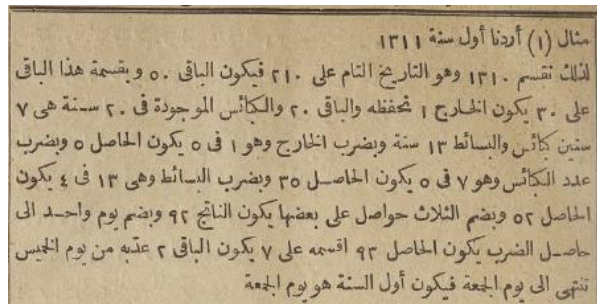 مثال (١) أردنا أول سنة ١٣١١
لذلك نقسم ١٣١٠ وهو التاريخ التام على ٢١٠ فيكون الباقى ٥٠ وبقسمة هذا الباقى
على ٣٠ يكون الخارج ١ تحفظه والباقى ٢٠ والكبائس الموجودة فى ٢٠ سنة هى ٧
سنين كبائس والبسائط ١٣ سنة وبضرب الخارج وهو ١ فى ٥ يكون الحاصل ٥ وبضرب
عدد الكبائس وهو ٧ فى ٥ يكون الحاصل ٣٥ وبضرب البسائط وهى ١٣ فى ٤ يكون
الحاصل ٥٢ وبضم الثلاث حواصل على بعضها يكون الناتج ٩٢ وبضم يوم واحد الى
حاصل الضرب يكون الحاصل ٩٣ اقسمه على ٧ يكون الباقى ٢ عدّبه من يوم الخميس
تنتهى الى يوم الجمعة فيكون أول السنة هو يوم الجمعة